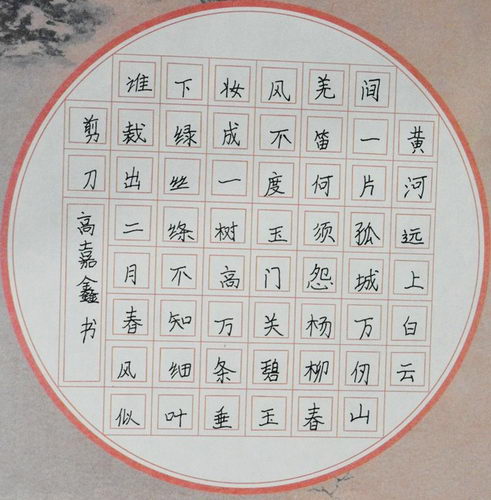 黄河远上白云
间一片孤城万仞山
羌笛何须怨杨柳春
风不度玉门关碧玉
妆成一树高万条垂
下绿丝绦不知细叶
谁裁出二月春风似
剪刀
高嘉鑫书